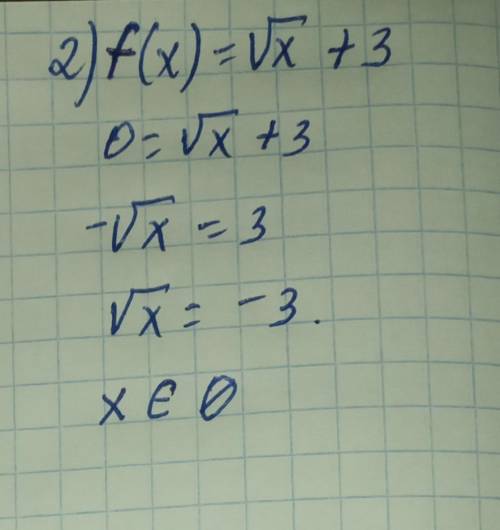 2) f(x) = √x + 3
0 = √x + 3
-√x = 3
√x = -3.
x ∈ ∅